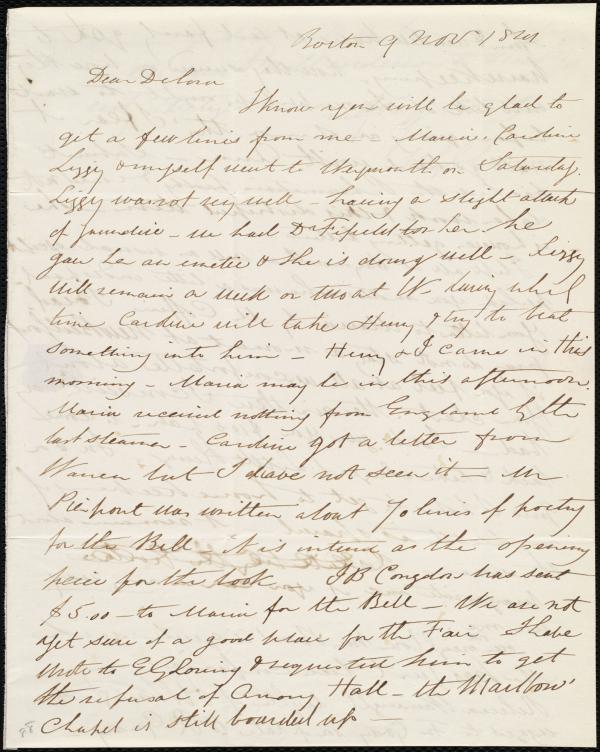 Boston 9 Nov 1841
Dear Debora
I know you will be glad to
get a few lines from me - Maria, Caroline
Lizzy & myself went to Weymouth on Saturday.
Lizzy was not very well - having a slight attack
of jaundice - we had Dr Fifield to her. he
gave her an emetic & she is doing well - Lizzy
will remain a week or two at W. during which
time Caroline will take Henry & try to beat
something into him - Henry & I came in this
morning - Maria may be in this afternoon.
Maria received nothing from England by the
last steamer - Caroline got a letter from
Warren but I have not seen it - Mr
Pierpont has written about 70 lines of poetry
for the Bell it is intend as the opening
peice for the book J B Congdon has sent
$5.00 - to Maria for the Bell - We are not
yet sure of a good place for the Fair I have
write to E G Loring & requested him to get
the refusal of Amory Hall - the Marlboro'
Chapel is still boarded up -